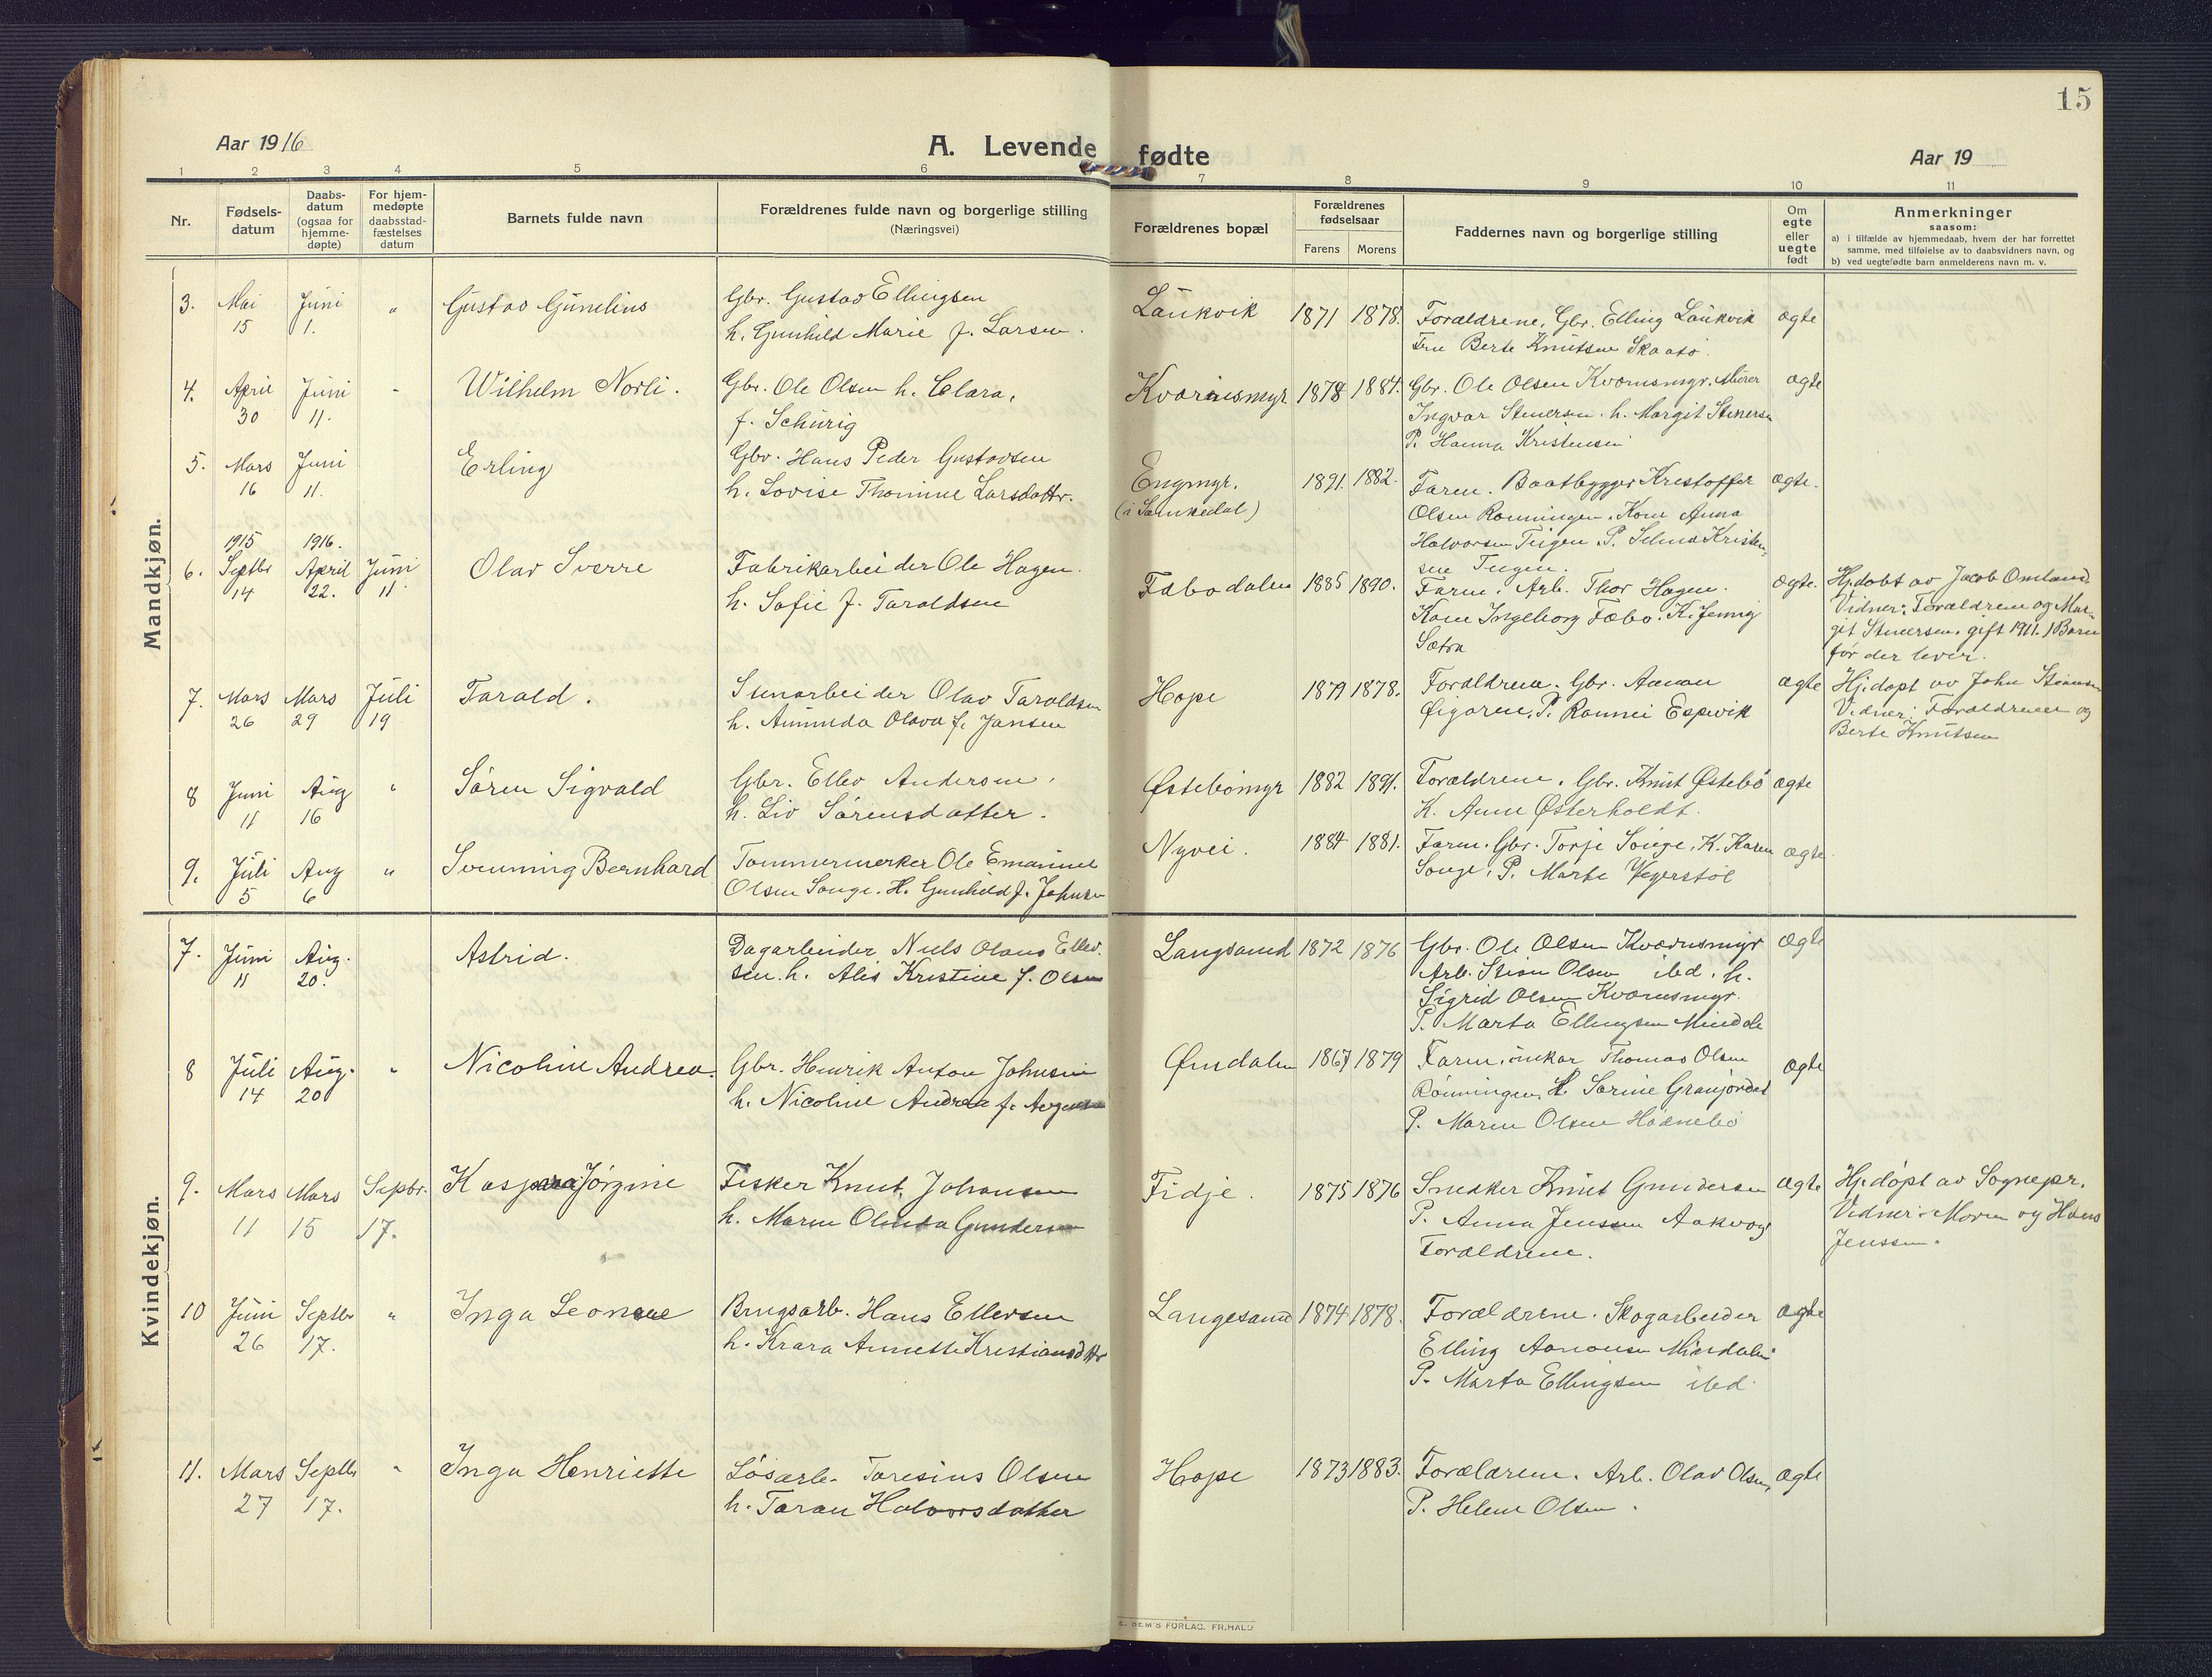 15
Aar 1916
A. Levende fødte
Aar 19
1 2 3 4 5 6 7 8 9 10 11
Nr.
Fødsels-
datum
Daabs-
datum
(ogsaa for
hjemme-
døpte)
For hjem-
medøpte
daabsstad-
fæstelses
datum
Barnets fulde navn
Forældrenes fulde navn og borgerlige stilling
(Næringsvei)
Forældrenes bopæl
Forældrenes
fødselsaar
Farens Morens
Faddernes navn og borgerlige stilling
Om
egte
eller
uegte
født
Anmerkninger
saasom:
a) i tilfælde av hjemmedaab, hvem der har forrettet
samme, med tilføielse av to daabsvidners navn, og
b) ved uegtefødte barn anmelderens navn m. v.
Mandkjøn.
3. Mai 15 Juni 1. " Gustav Gunelius
Gbr. Gustav Ellingsen
h. Gunhild Marie f. Larsen.
Laukvik 1871 1878.
Forældrene, Gbr. Elling Laukvik
Fru Berte Knutsen Skaatø.
ægte
4. April 30 Juni 11. " Wilhelm Norli.
Gbr. Ole Olsen h. Clara,
f. Schürig
Kvarnsmyr 1878 1884.
Gbr. Ole Olsen Kvarnsmyr, Murer
Ingvar Stenersen. h. Margit Stenersen
P. Hanna Kristensen
ægte
5. Mars 16 Juni 11. Erling
Gbr. Hans Peder Gustavsen
h. Lovise Thomine Larsdattr.
Engmyr.
(i Sannkedal)
1891. 1882.
Faren. Baatbygger Kristoffer
Olsen Rønningen. Kone Anna
Halvorsen Teigen. P. Selma Kristen-
sen Teigen.
ægte.
6. 1915 Septbr 14 1916. April 22. Juni 11 Olav Sverre
Fabrikarbeider Ole Hagen.
h. Sofie f. Taraldsen
Fæbodalen 1885 1890.
Faren. Arb. Thor Hagen.
Kone Ingeborg Fæbo. K. Jenny
Sætra
ægte.
Hj.døbt av Jacob Omland
Vidner: Forældrene og Mar-
git Stenersen. gift 1911. 1 Barn
før der lever.
7. Mars 26 Mars 29 Juli 19 Tarald.
Stenarbeider Olav Taraldsen
h. Amunda Olava f. Jansen
Hope 1879 1878.
Forældrene. Gbr. Aanon
Øigaren. P. Ronnei Espevik
ægte
Hj.døpt av John Stiansen
Vidner: Forældrene og
Berte Knutsen
8 Juni 11 Aug 16 " Søren Sigvald
Gbr. Ellev Andersen.
h. Liv Sørensdatter.
Østebömyr 1882 1891.
Forældrene. Gbr. Knut Østebö
K. Anne Østerholdt.
ægte
9. Juli 5 Aug 6 " Svenning Bernhard
Tømmermerker Ole Emanuel
Olsen Songe. H. Gunhild f. Johnsen
Nyvei. 1884 1881.
Faren. Gbr. Torje Songe. K. Karen
Songe. P. Marte Vegerstöl
ægte.
Kvindekjøn.
7. Juni 11 Aug. 20. Astrid.
Dagarbeider Niels Olaus Ellev-
sen. h. Alis Kristine f. Olsen
Langsand 1872 1876
Gbr. Ole Olsen Kvarnsmyr
Arb. Stian Olsen ibd. h.
Sigrid Olsen Kvarnsmyr.
P. Marta Ellingsen Mindale
ægte
8 Juli 14 Aug. 20 " Nicoline Andrea.
Gbr. Henrik Anton Johnsen
h. Nicoline Andrea f.
Øinsdalen 1867 1879
Faren, Thomas Olsen
Rönningen H. Sørine Granjordet
P. Maren Olsen Hödnebö
ægte
9. Mars 11 Mars 15 Septbr. 17. Kaspara Jörgine
Fisker Knut Johansen
h. Maren Olinda Gundersen
Fidje. 1875 1876
Snedker Knut Gundersen
P. Anna Jenssen Aakvog
Forældrene.
ægte
Hj.döpt av Sognepr.
Vidner: Moren og Hans
Jenssen.
10 Juni 26 Septbr 17. " Inga Leonæe
Brugsarb. Hans Ellevsen
h. Krara Annette Kristiansdttr
Langesand 1874 1878.
Forældrene. Skogarbeider
Elling Aanonsen Mindalen
P. Marta Ellingsen ibd.
ægte
11. Mars 27 Septbr 17. " Inga Henriette
Løsarb. Taresius Olsen
h. Taran Halvorsdatter
Hope 1873 1883.
Forældrene. Arb. Olav Olsen,
P. Helene Olsen.
ægte
E. SEM'S FORLAG. FR.HALD